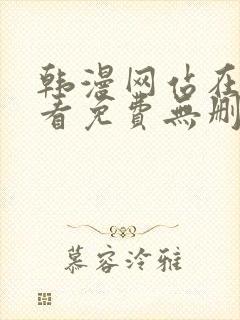 韩漫网占在
看免費無删
慕容泠雅